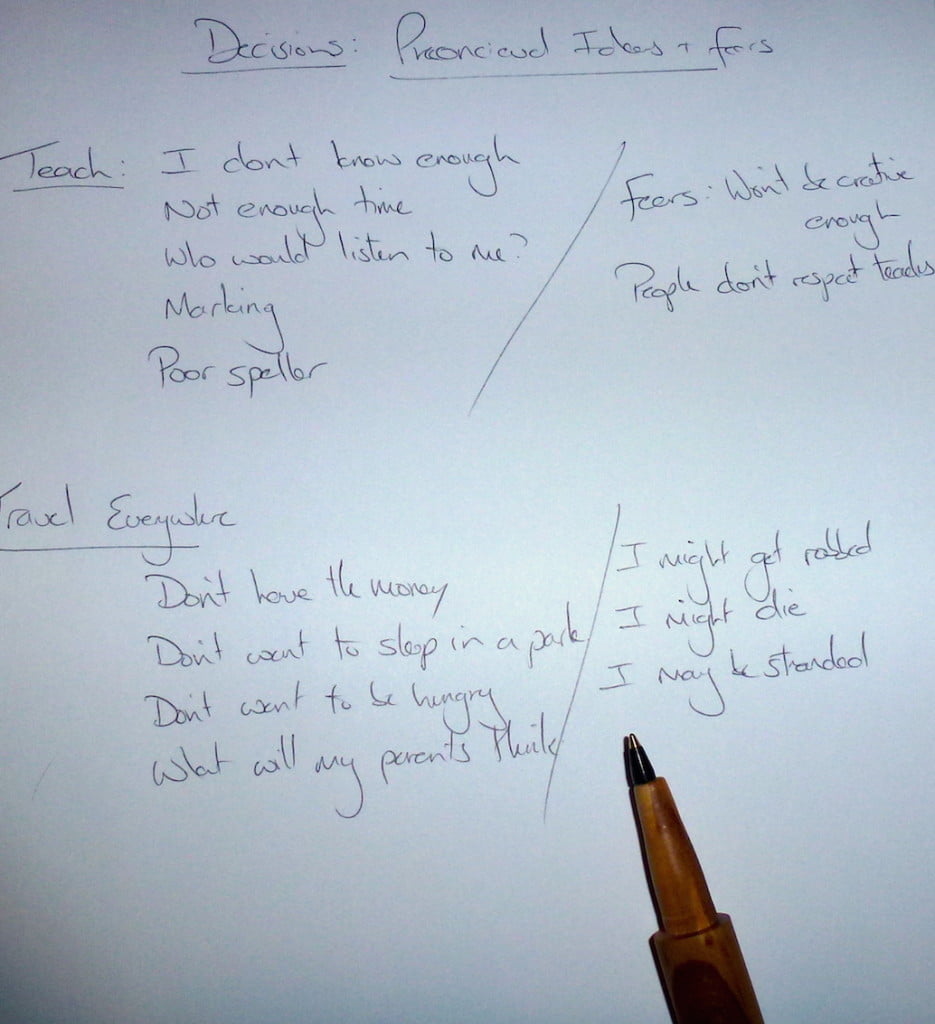 Decisions: Preconcieved Ideas + fears
Teach: I dont know enough
Not enough time
Who would listen to me?
Marking
Poor speller
Feers: Won't be crative
enough
People don't respect teachers
Travel Everywhere
Don't have the money
Don't want to sleep in a park
Don't want to be hungry
What will my parents think
I might get robbed
I might die
I may be stranded